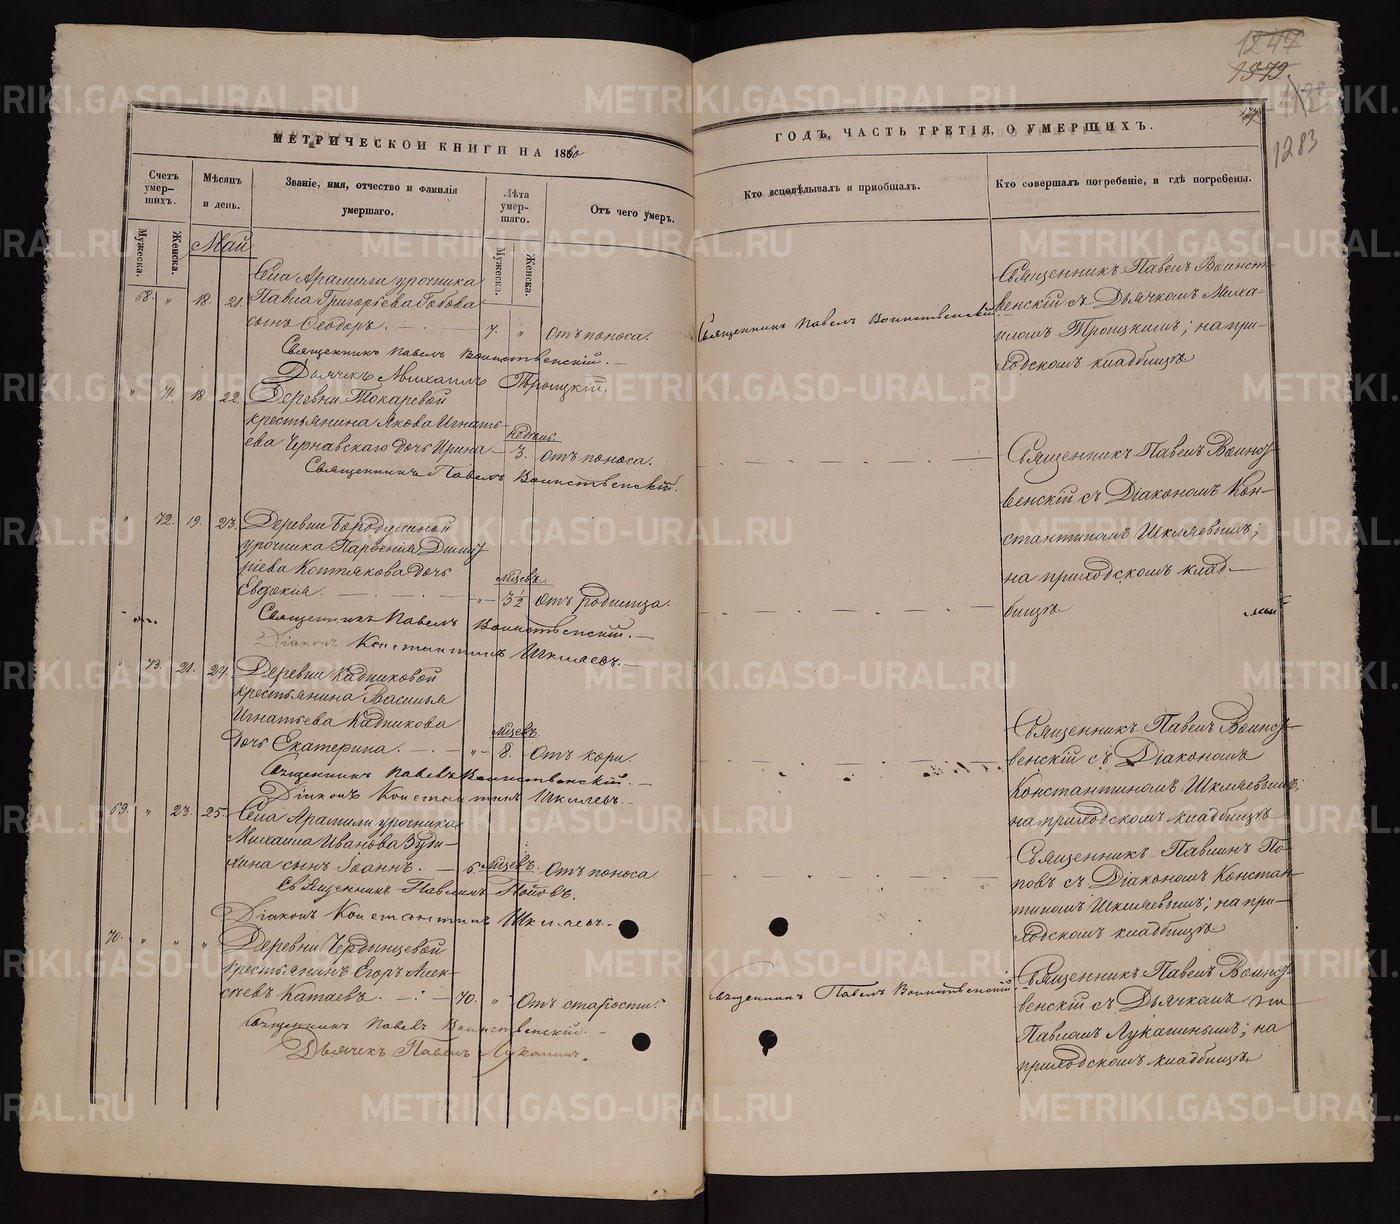 1247
1379.
1283
МЕТРИЧЕСКОЙ КНИГИ НА 1860
ГОДЪ, ЧАСТЬ ТРЕТІЯ, О УМЕРШИХЪ.
Счетъ умер-шихъ.
Мужеска.
Женска.
Мѣсяцъ и день.
Званіе, имя, отчество и фамилія умершаго.
Лѣта умер-шаго.
Мужеска.
Женска.
Отъ чего умеръ.
Кто исповѣдывалъ и пріобщалъ.
Кто совершалъ погребеніе, и гдѣ погребены.
Май
Села Арамили урочника
68. " 18. 21. Павла Григорьева
сынъ Ѳеодоръ. 7. " Отъ поноса.
Священникъ Павелъ Воинственскій.
Дьячекъ Михаилъ Троицкій.
Священникъ Павелъ Воинственскій
Священникъ Павелъ Воинст-
венскій съ Дьячкомъ Миха-
иломъ Троицкимъ; на при-
ходскомъ кладбищѣ
" 71. 18 22. Деревни Токаревой
крестьянина Якова Игнать-
ева Чернавскаго дочь Ирина
недѣль
3. Отъ поноса.
Священникъ Павелъ Воинственскій.
Священникъ Павелъ Воинст
венскій съ Діакономъ Кон-
стантиномъ Шкляевымъ;
на приходскомъ клад-
бищѣ
" 72. 19. 23. Деревни Бородулиной
урочника Парѳенія Димит
ріева Коптякова дочь
Евдокія.
мѣсяц.
" 3½ Отъ родимца.
Священникъ Павелъ Воинственскій.
Діаконъ Константинъ Шкляевъ.
" 73. 21. 24. Деревни Кадниковой
крестьянина Василья
Игнатьева Кадникова
дочь Екатерина.
мѣсяц.
" 8. Отъ кори.
Священникъ Павелъ Воинственскій.
Діаконъ Константинъ Шкляевъ.
Священникъ Павелъ Воинст
венскій съ Діакономъ
Константиномъ Шкляевымъ;
на приходскомъ кладбищѣ
69. " 23. 25. Села Арамили урочника
Михаила Иванова
сынъ Іоаннъ. 6. мѣсяц. Отъ поноса
Священникъ Павлинъ Поповъ.
Діаконъ Константинъ Шкляевъ.
Священникъ Павлинъ По-
повъ съ Діакономъ Констан-
тиномъ Шкляевымъ; на при-
ходскомъ кладбищѣ
70. " " " Деревни Чердынцевой
крестьянинъ Егоръ Алек-
сѣевъ Катаевъ. 70. " Отъ старости.
Священникъ Павелъ Воинственскій.
Дьячекъ Павелъ Лукапинъ.
Священникъ Павелъ Воинственскій
Священникъ Павелъ Воинст
венскій съ Дьячкомъ
Павломъ Лукапинымъ; на
приходскомъ кладбищѣ
METRIKI.GASO-URAL.RU